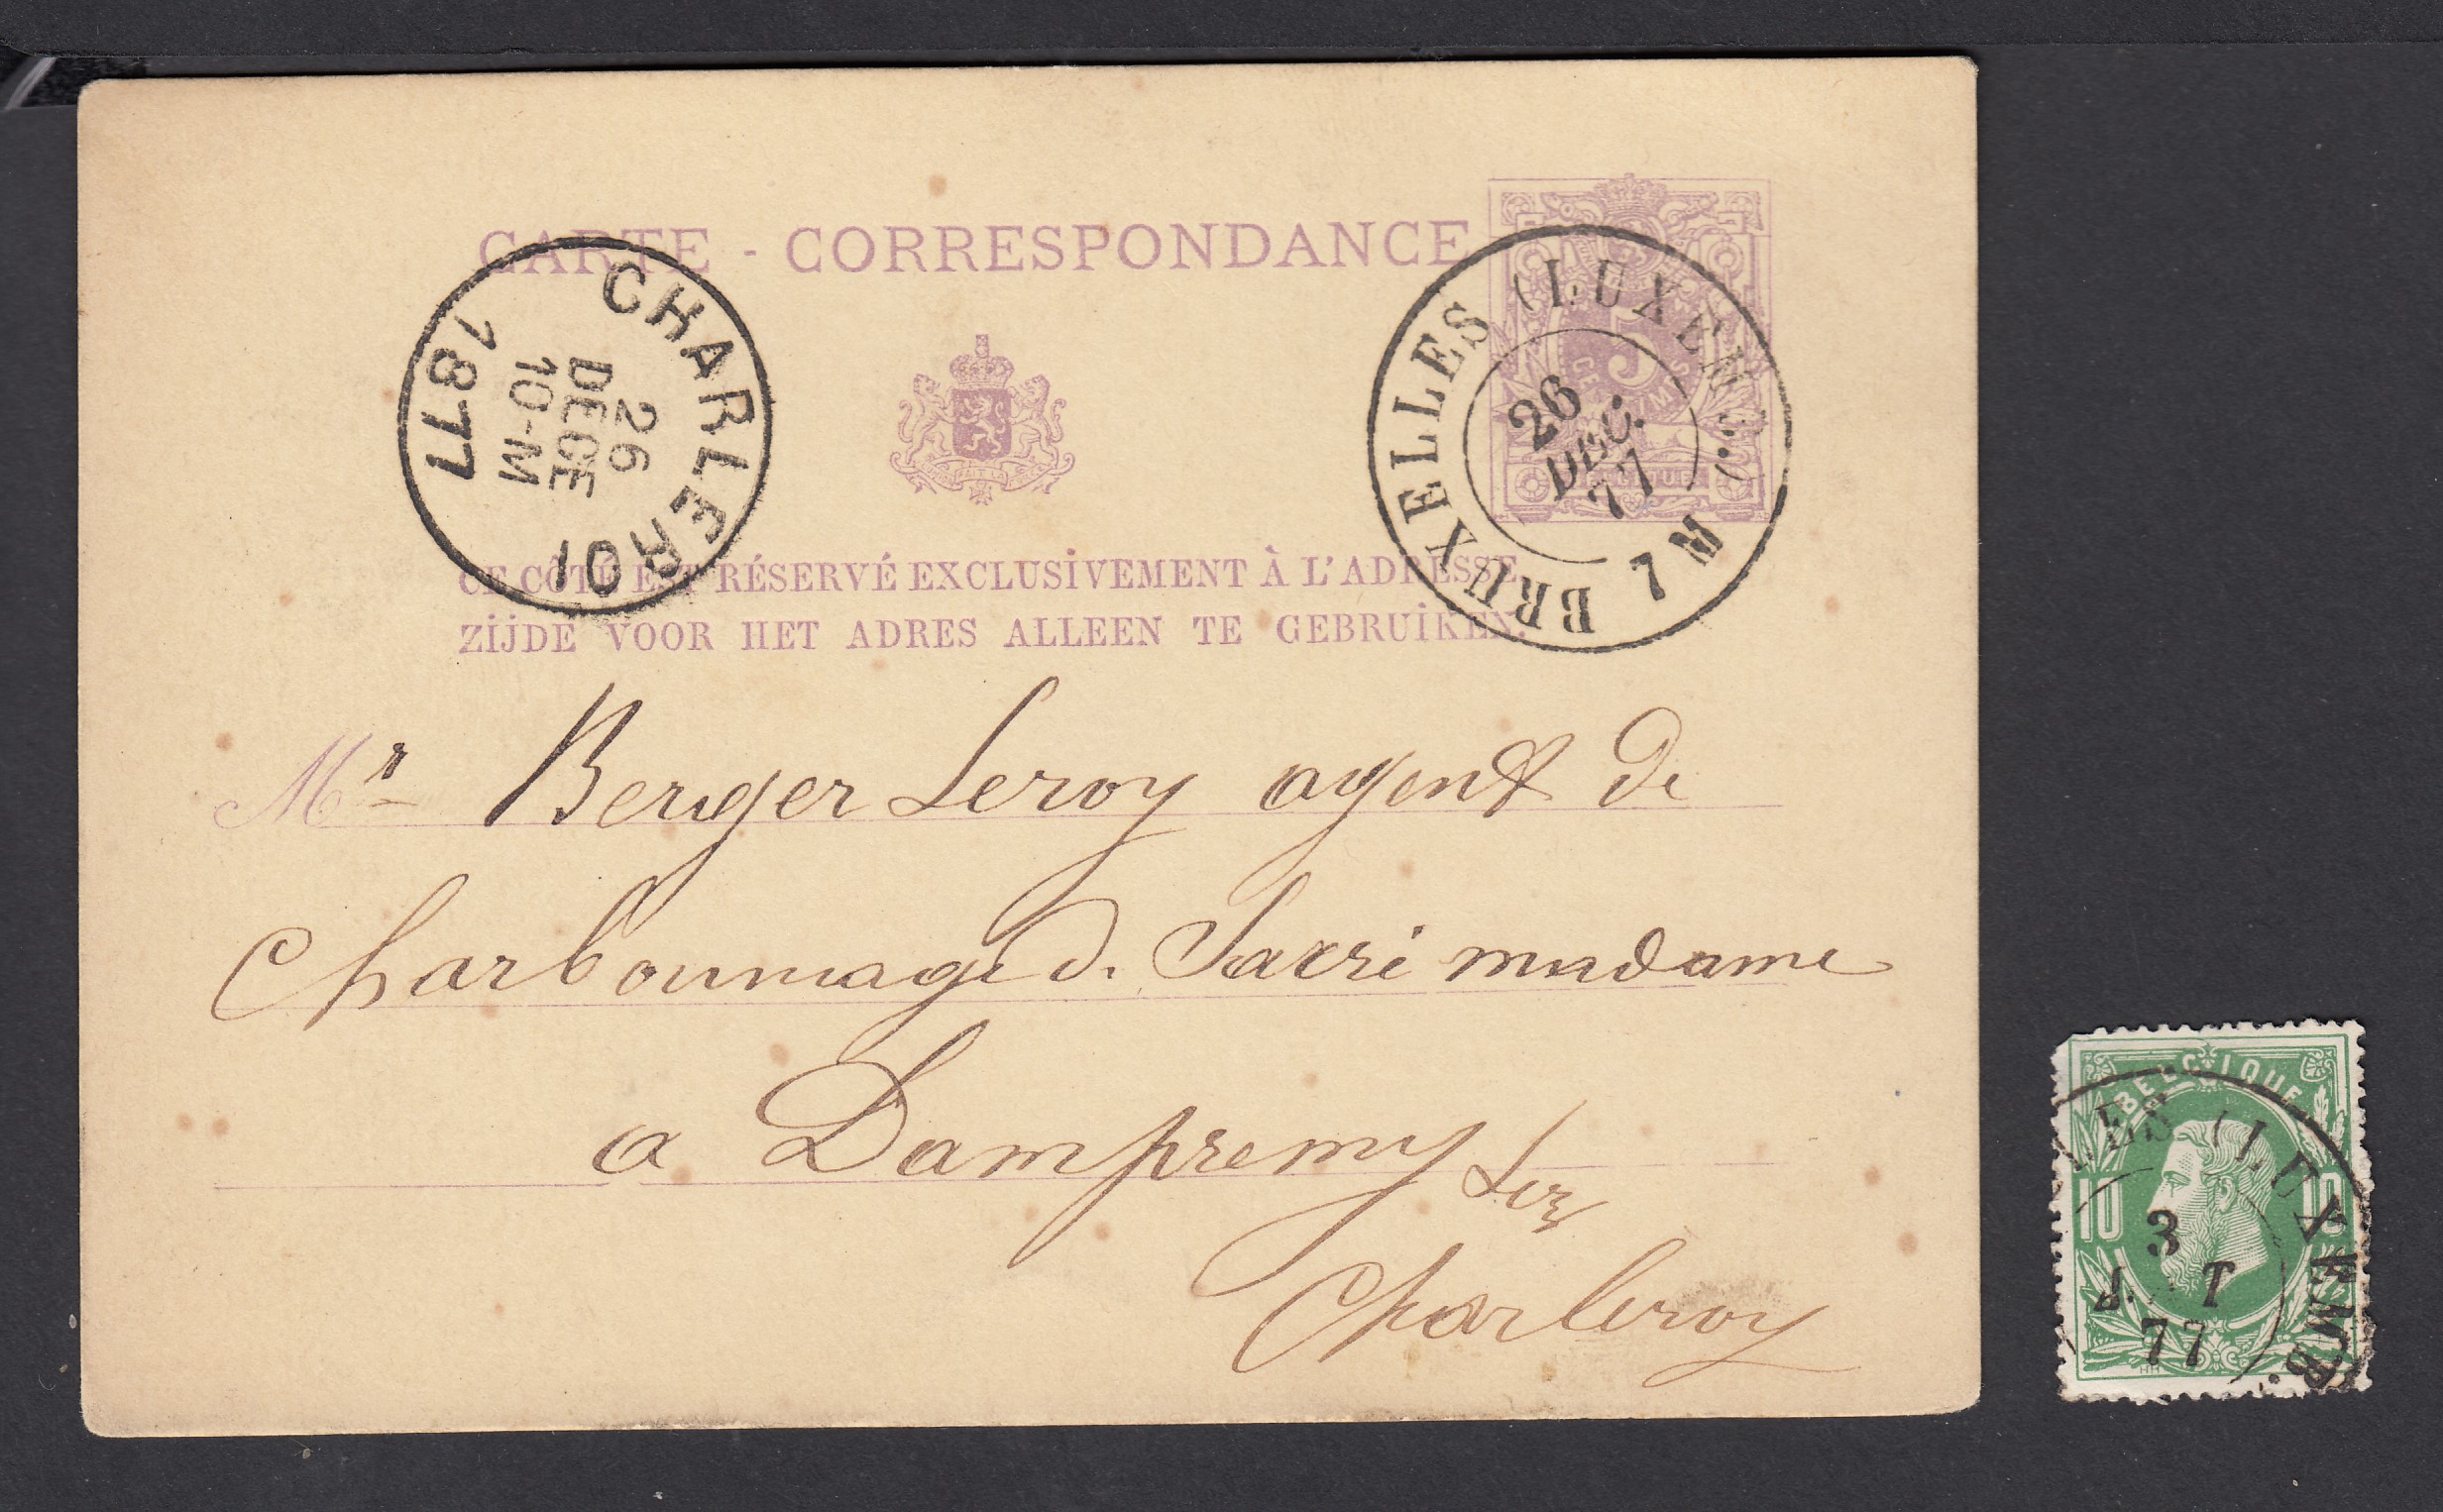 CARTE - CORRESPONDANCE
CHARLEROI
26
DECE
10-M
1877
BRUXELLES (LUXEMB.)
7 M
26
DEC.
77
5
CE CÔTÉ EST RÉSERVÉ EXCLUSIVEMENT À L'ADRESSE.
ZIJDE VOOR HET ADRES ALLEEN TE GEBRUIKEN.
Mr Berger Leroy agent de
Charbonnage d. Sacré madame
a Dampremy Lez
Charleroy
BELGIQUE
10 10
LES (LUXEMB.
3
T
77